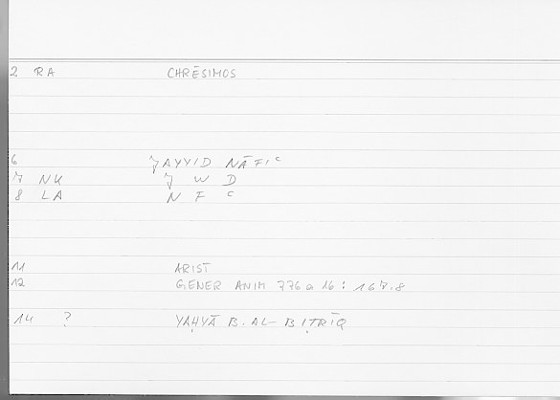 2 RA CHRĒSIMOS
6 ǦAYYID NĀFIʿ
7 NK Ǧ W D
8 LA N F ʿ
11 ARIST
12 GENER ANIM 776 a 16 : 167.8
14 ? YAḤYĀ B. AL-BIṬRĪQ